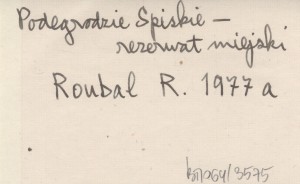 Podegrodzie Spiskie –
rezerwat miejski
Roubal R. 1977 a
/3575